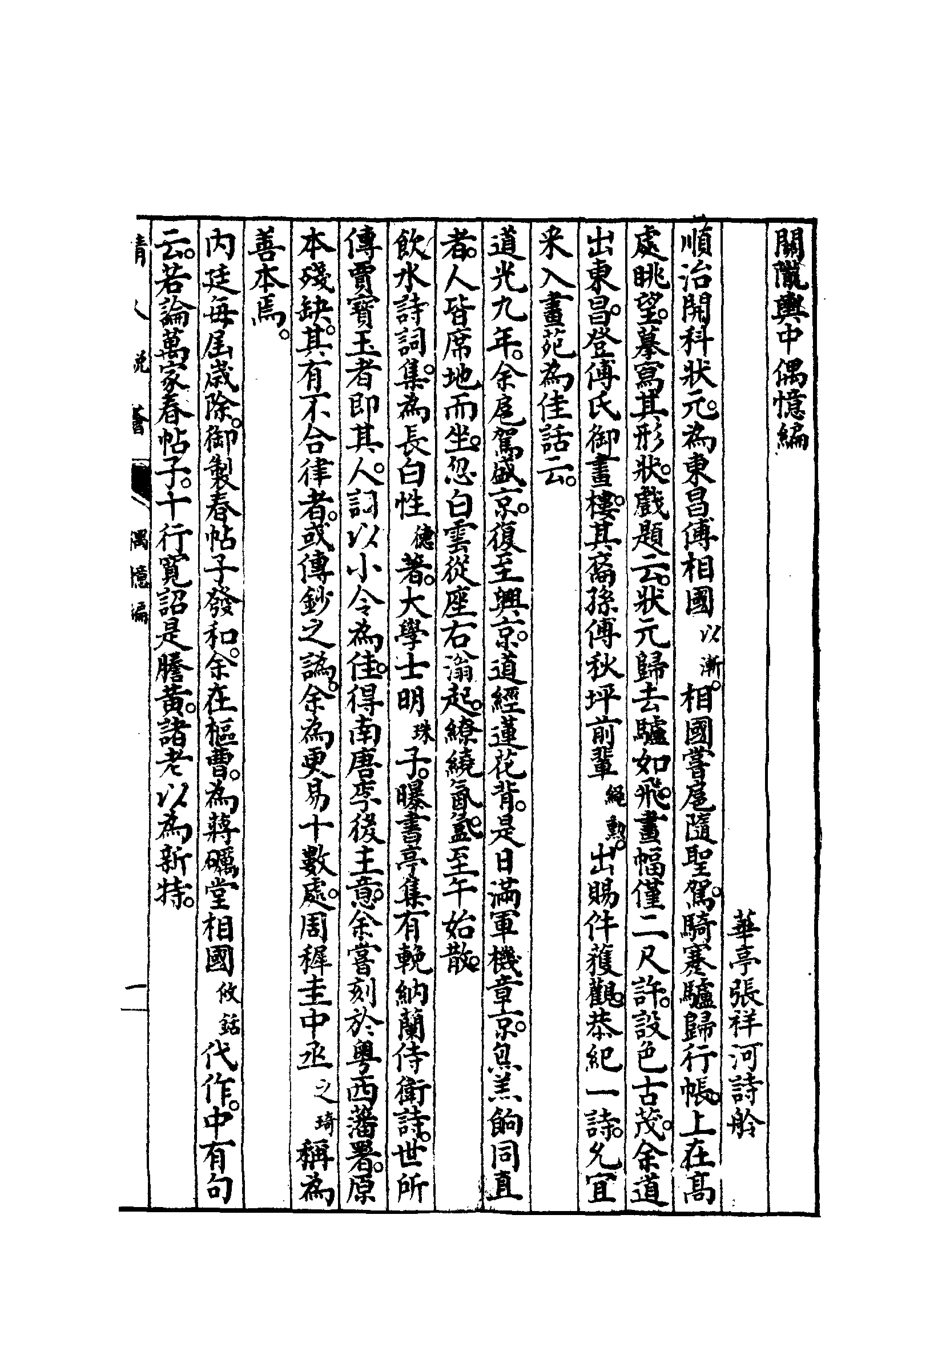 關隴輿中偶憶編
華亭張祥河詩舲
順治開科狀元。為東昌傅相國以漸。相國嘗扈隨聖駕。騎蹇驢歸行帳。上在高
處眺望。摹寫其形狀。戲題云。狀元歸去驢如飛。畫幅僅二尺許。設色古茂。余道
出東昌。登傅氏御畫樓。其裔孫傅秋坪前輩繩勲。出賜件獲觀。恭紀一詩。允宜
采入畫苑為佳話云。
道光九年。余扈駕盛京。復至興京。道經蓮花背。是日滿軍機章京。炰羔餉同直
者。人皆席地而坐。忽白雲從座右滃起。繚繞氤氳。至午始散。
飲水詩詞集。為長白性德著。大學士明珠子。曝書亭集有輓納蘭侍衛詩。世所
傳賈寶玉者即其人。詞以小令為佳。得南唐李後主意。余嘗刻於粵西藩署。原
本殘缺。其有不合律者。或傳鈔之譌。余為更易十數處。周穉圭中丞之琦稱為
善本焉。
內廷每屆歲除。御製春帖子發和。余在樞曹。為蔣礪堂相國攸銛代作。中有句
云。若論萬家春帖子。十行寬詔是謄黃。諸老以為新特。
清人說薈
偶憶編
一